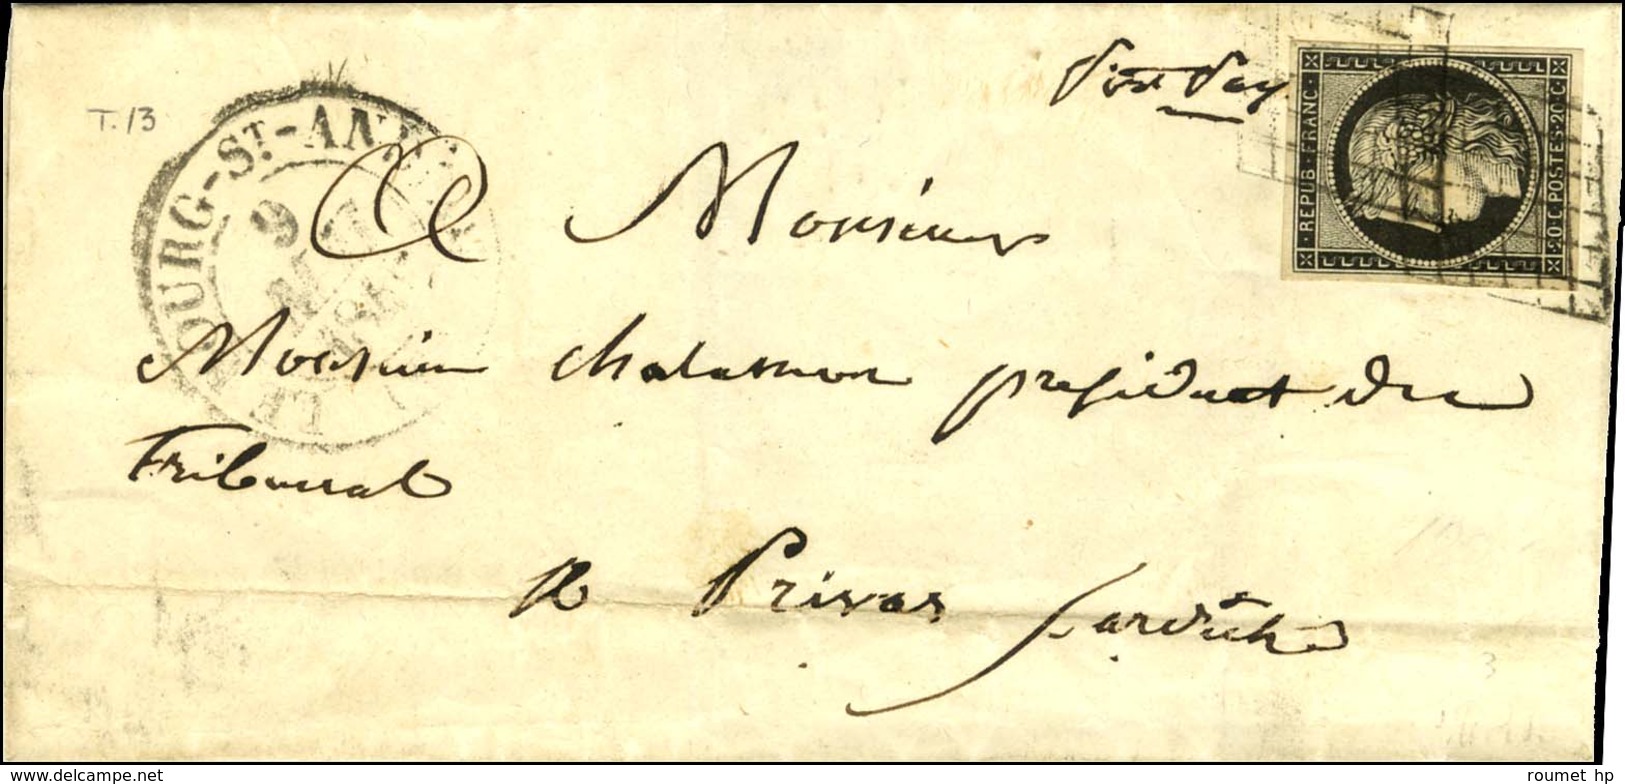 Port Pay
T. 13
LE BOURG-ST-ANDEOL
9
REPUB·FRANC·
20·C·POSTES·20·C
A Monsieur
Monsieur Chalamon president du
Tribunal
a Privas
ardèche
3
www.delcampe.net
roumet hp